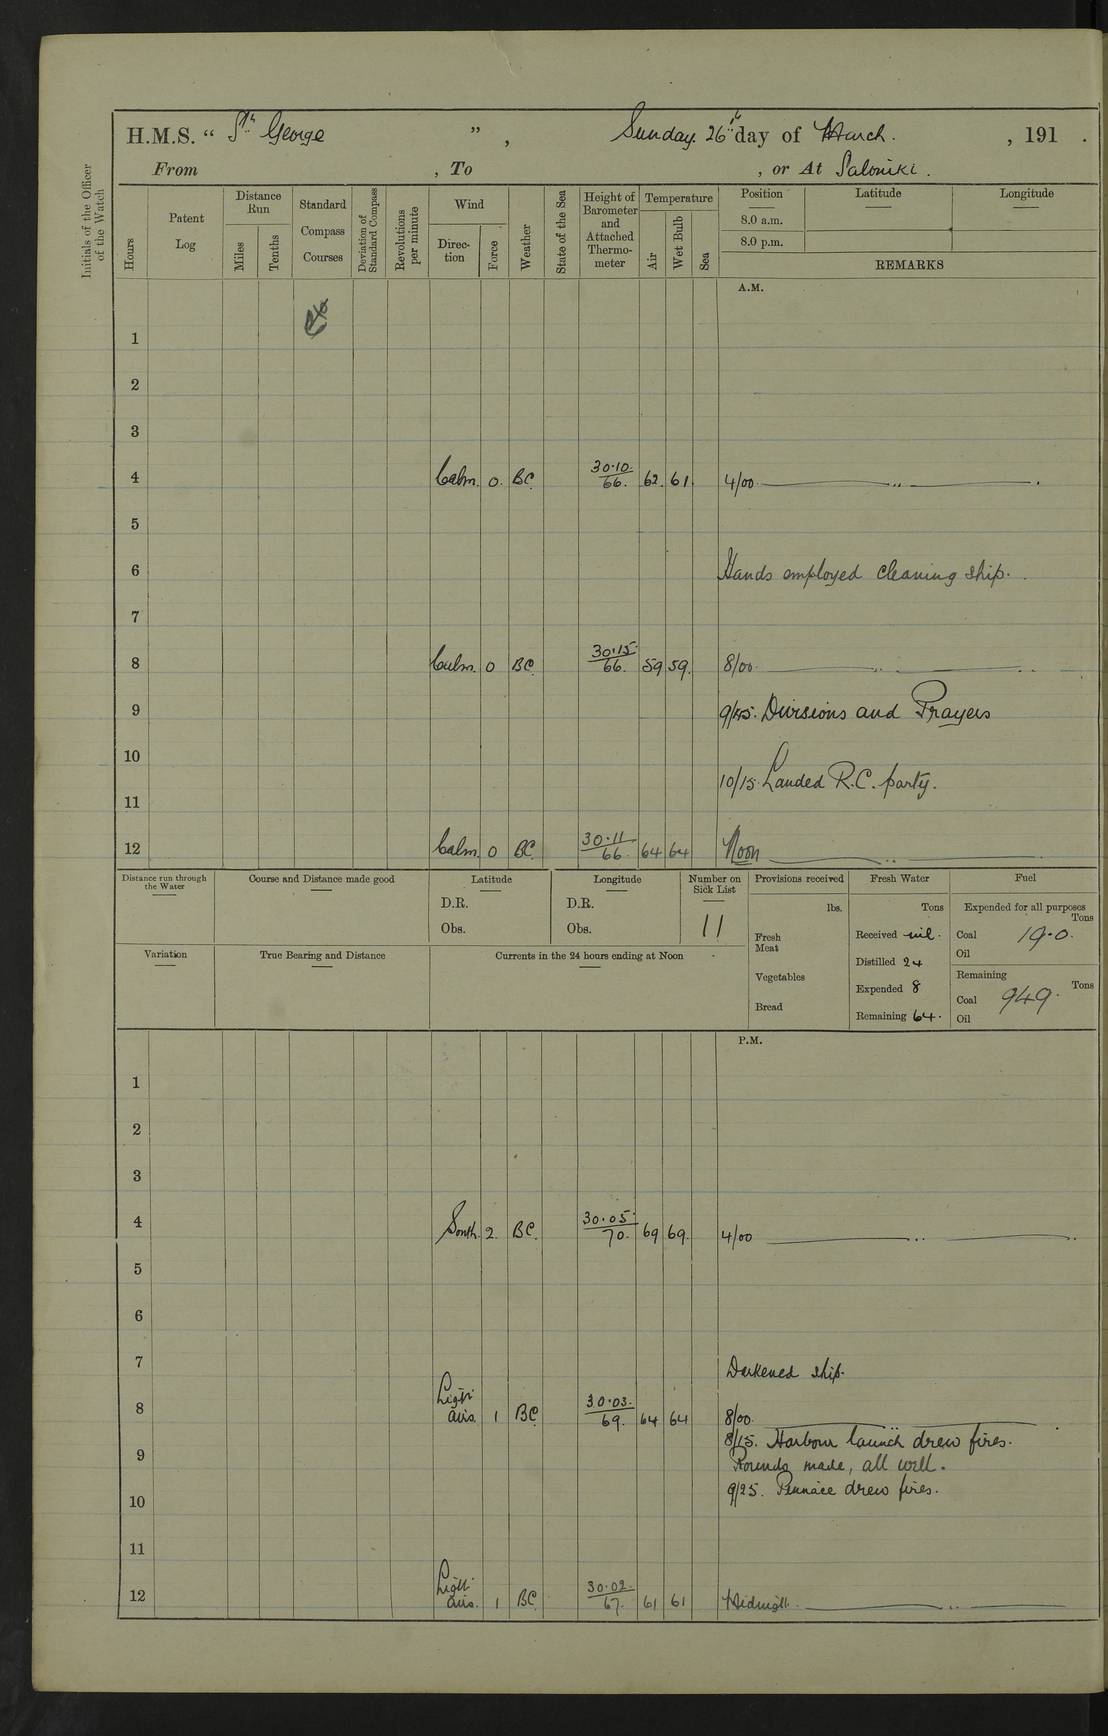 H.M.S. “ St. George ” , Sunday. 26th day of March. , 191 .
From , To , or At Saloniki.
Initials of the Officer of the Watch
Hours
Patent Log
Distance Run
Miles
Tenths
Standard Compass Courses
Deviation of Standard Compass
Revolutions per minute
Wind
Direc-tion
Force
Weather
State of the Sea
Height of Barometer and Attached Thermo-meter
Temperature
Air
Wet Bulb
Sea
Position Latitude Longitude
8.0 a.m.
8.0 p.m.
REMARKS
A.M.
1
2
3
4 Calm. 0. BC. 30.10. 66. 62. 61. 4/00. — „ — .
5
6 Hands employed cleaning ship.
7
8 Calm. 0 BC. 30.15. 66. 59 59. 8/00. — „ — „
9 9/45. Divisions and Prayers
10
10/15. Landed R.C. party.
11
12 Calm. 0 BC. 30.11 66. 64 64 Noon — „ —
Distance run through the Water
Course and Distance made good
Latitude
D.R.
Obs.
Longitude
D.R.
Obs.
Number on Sick List
11
Provisions received
lbs.
Fresh Meat
Vegetables
Bread
Fresh Water
Tons
Received nil.
Distilled 24
Expended 8
Remaining 64.
Fuel
Expended for all purposes
Tons
Coal 19.0.
Oil
Remaining
Tons
Coal 949.
Oil
Variation
True Bearing and Distance
Currents in the 24 hours ending at Noon
P.M.
1
2
3
4 South. 2 BC. 30.05. 70. 69 69. 4/00 — „ — .
5
6
7 Darkened ship.
8 Light airs. 1 BC. 30.03. 69. 64 64 8/00. — „ —
8/15. Harbour launch drew fires.
9 Rounds made, all well.
9/25. Pinnace drew fires.
10
11
12 Light airs. 1 BC. 30.02. 67. 61 61 Midnight. — „ —